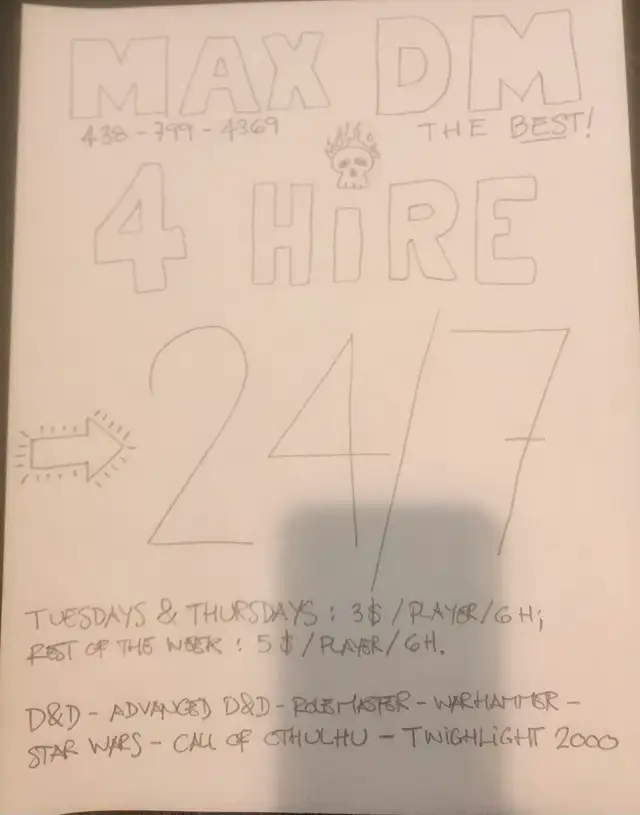 MAX DM
438-799-4369 THE BEST!
4 HiRE
24/7
TUESDAYS & THURSDAYS : 3$/PLAYER/6H;
REST OF THE WEEK : 5$/PLAYER/6H.
D&D - ADVANCED D&D - ROLEMASTER - WARHAMMER -
STAR WARS - CALL OF CTHULHU - TWIGHLIGHT 2000